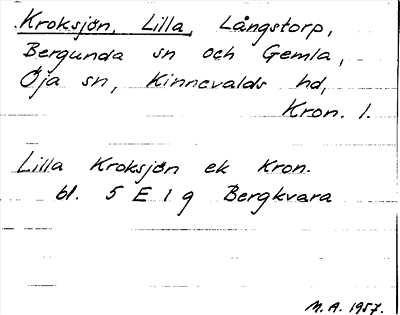 Kroksjön, Lilla, Långstorp,
Bergunda sn och Gemla,
Öja sn, Kinnevalds hd,
Kron. l.
Lilla Kroksjön ek Kron.
bl. 5 E 1 g Bergkvara
M. A. 1957.